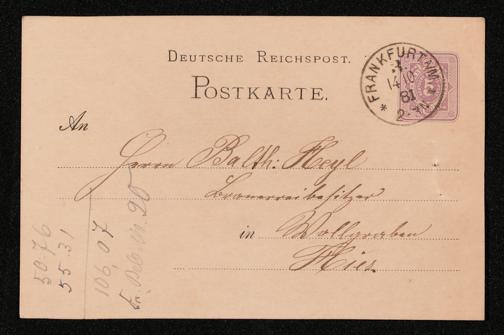 DEUTSCHE REICHSPOST.
POSTKARTE.
FRANKFURT A/M.
3.
14/10
81
2-3N.
An
Herrn Balth: Heyl
Brauereibesitzer
in Wollgraben
Hier.
50.76
55.31
106,07
90